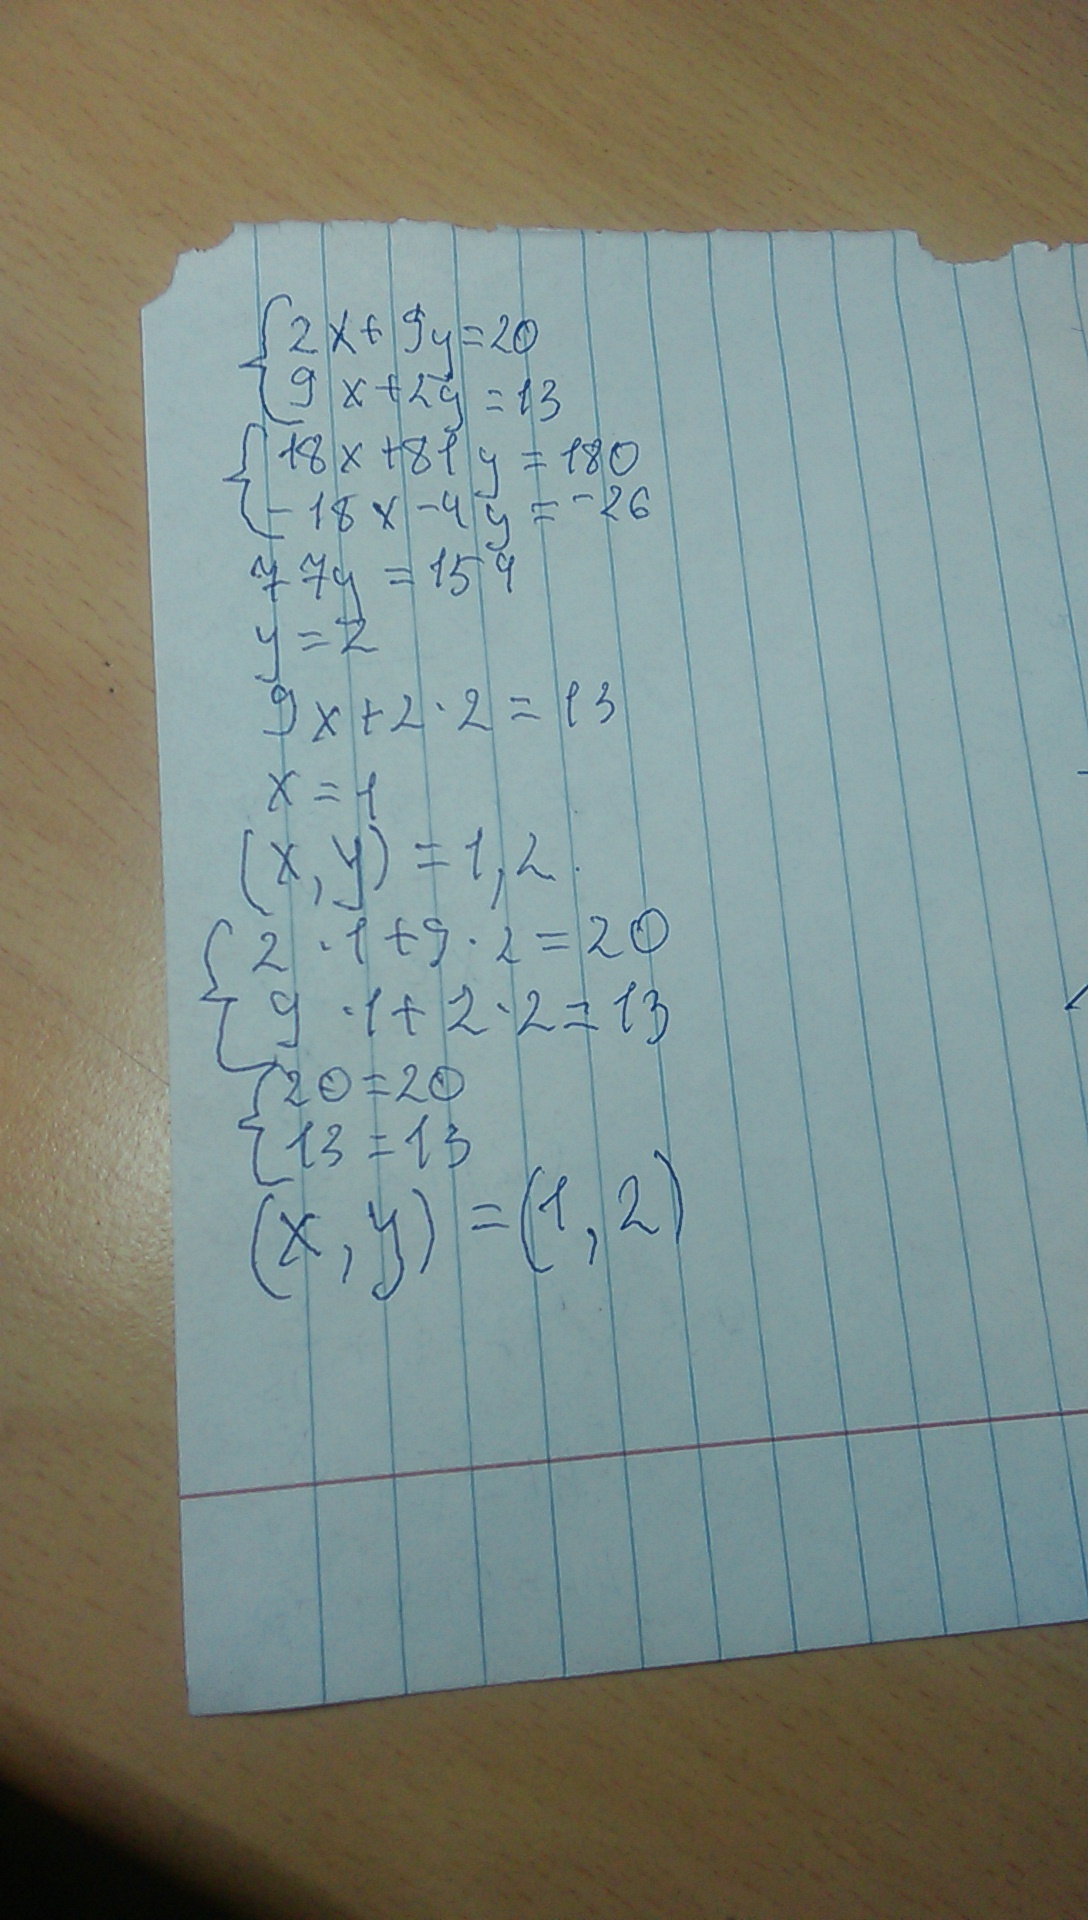 {2x+9y=20
{9x+2y=13
{18x+81y=180
{-18x-4y=-26
77y=154
y=2
9x+2·2=13
x=1
(x,y)=1,2.
{2·1+9·2=20
{9·1+2·2=13
{20=20
{13=13
(x,y)=(1,2)